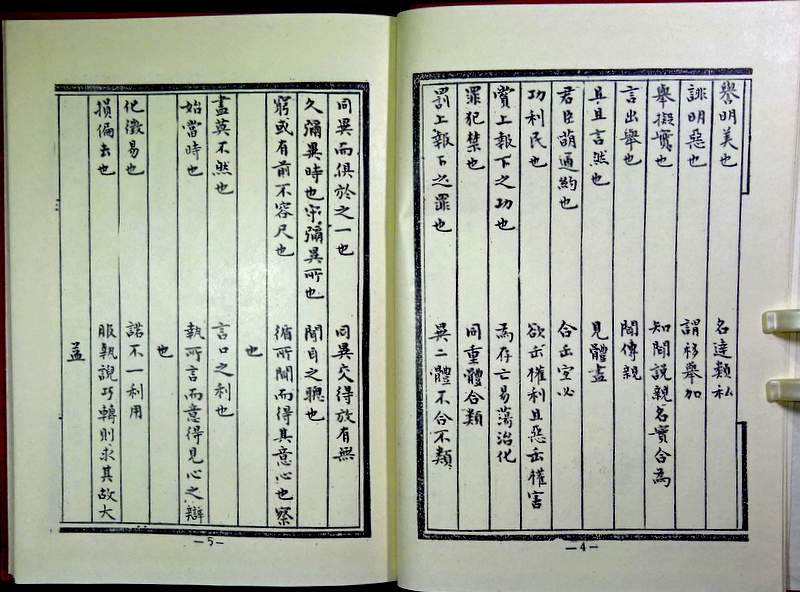 譽明美也　名達類私
誹明惡也　謂移舉加
舉擬實也　知聞說親名實合為
言出舉也　聞傳親
且且言然也　見體盡
君臣萌通約也　合正宜必
功利民也　欲正權利且惡正權害
賞上報下之功也　為存亡易蕩治化
罪犯禁也　同重體合類
罰上報下之罪也　異二體不合不類
—4—
同異而俱於之一也　同異交得放有無
久彌異時也宇彌異所也　聞耳之聰也
窮或有前不容尺也　循所聞而得其意心也察
也
盡莫不然也　言口之利也
始當時也　執所言而意得見心之辯
也
化徵易也　諾不一利用
損偏去也　服執說巧轉則求其故大
益
—5—